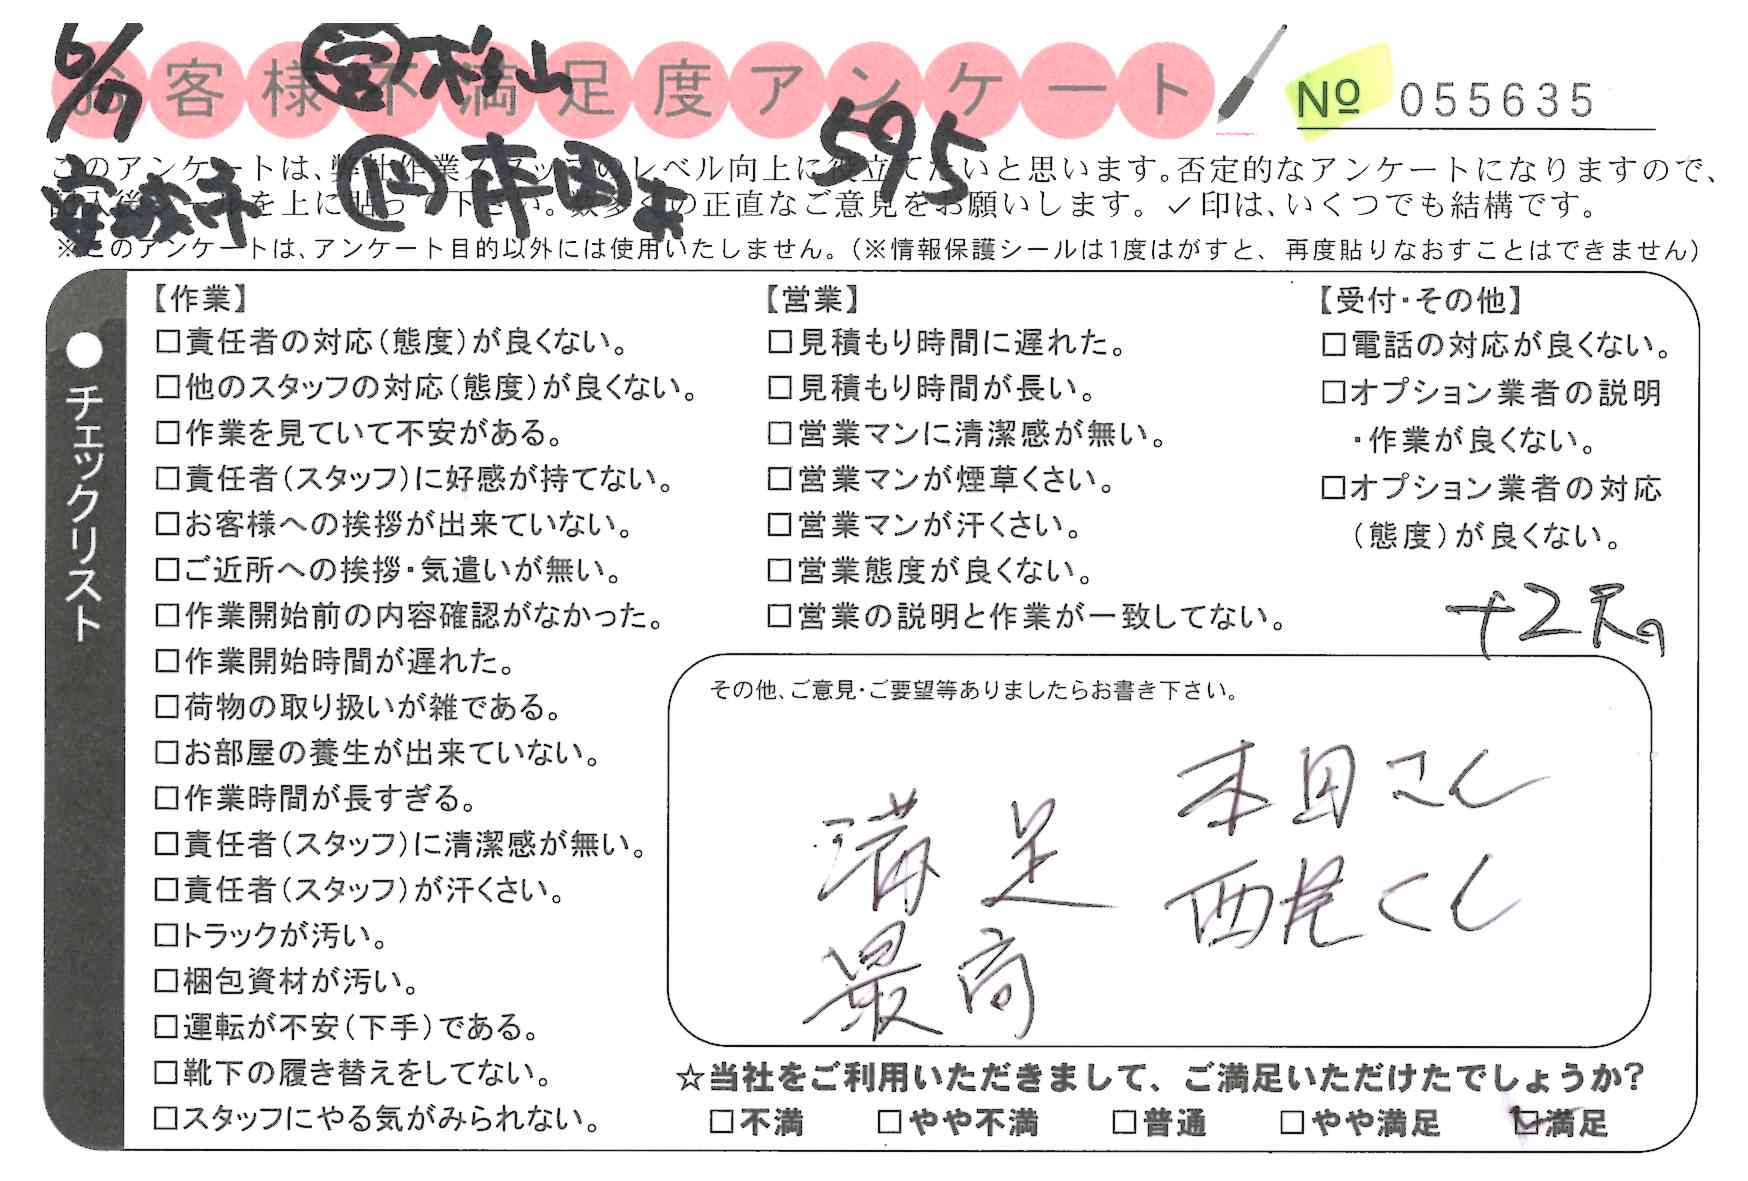 6/7 営 杉山
お客様不満足度アンケート
№ 055635
595
このアンケートは、弊社作業スタッフのレベル向上に役立てたいと思います。否定的なアンケートになりますので、
記入後シールを上に貼って下さい。数多くの正直なご意見をお願いします。✓印は、いくつでも結構です。
※このアンケートは、アンケート目的以外には使用いたしません。(※情報保護シールは1度はがすと、再度貼りなおすことはできません)
●チェックリスト
【作業】
□責任者の対応(態度)が良くない。
□他のスタッフの対応(態度)が良くない。
□作業を見ていて不安がある。
□責任者(スタッフ)に好感が持てない。
□お客様への挨拶が出来ていない。
□ご近所への挨拶・気遣いが無い。
□作業開始前の内容確認がなかった。
□作業開始時間が遅れた。
□荷物の取り扱いが雑である。
□お部屋の養生が出来ていない。
□作業時間が長すぎる。
□責任者(スタッフ)に清潔感が無い。
□責任者(スタッフ)が汗くさい。
□トラックが汚い。
□梱包資材が汚い。
□運転が不安(下手)である。
□靴下の履き替えをしてない。
□スタッフにやる気がみられない。
【営業】
□見積もり時間に遅れた。
□見積もり時間が長い。
□営業マンに清潔感が無い。
□営業マンが煙草くさい。
□営業マンが汗くさい。
□営業態度が良くない。
□営業の説明と作業が一致してない。
【受付・その他】
□電話の対応が良くない。
□オプション業者の説明
・作業が良くない。
□オプション業者の対応
(態度)が良くない。
その他、ご意見・ご要望等ありましたらお書き下さい。
本田さん
満足
西尾くん
最高
☆当社をご利用いただきまして、ご満足いただけたでしょうか?
□不満 □やや不満 □普通 □やや満足 ☑満足